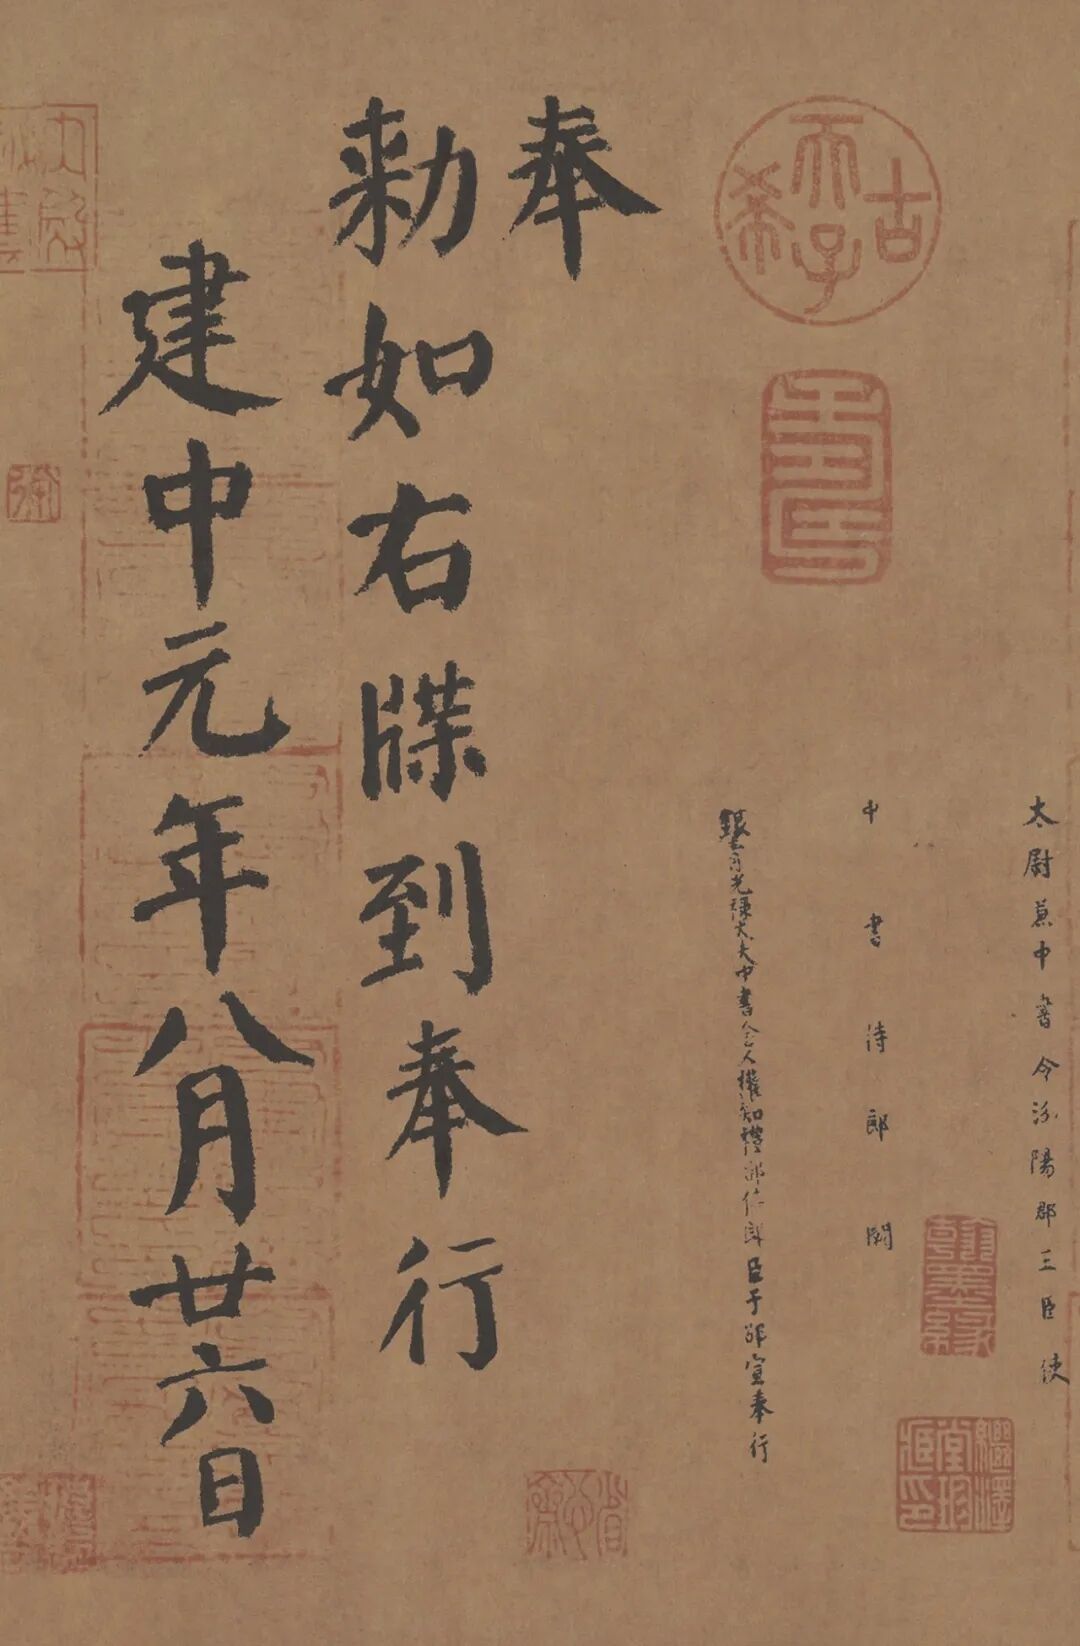 太尉兼中書令汾陽郡王臣使
中書侍郎闕
銀青光祿大夫中書舍人權知禮部侍郎臣于邵宣奉行
奉
勅如右牒到奉行
建中元年八月廿六日
古希天子
壽
繼澤堂珍藏印